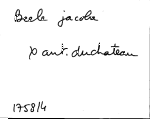 Beele jacobe
x ant. duchateau
1758/4